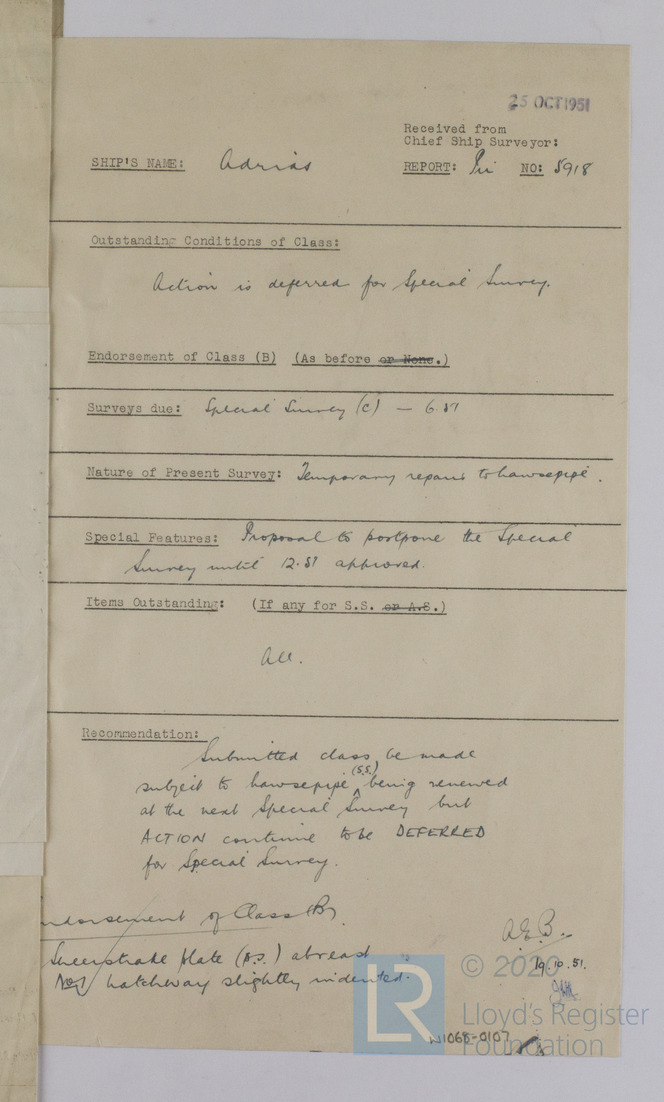 25 OCT 1951
Received from
Chief Ship Surveyor:
SHIP'S NAME: Adrias
REPORT: Pir NO: 5918
Outstanding Conditions of Class:
Action is deferred for Special Survey.
Endorsement of Class (B) (As before or None.)
Surveys due: Special Survey (C) — 6.51
Nature of Present Survey: Temporary repairs to hawsepipe.
Special Features: Proposal to postpone the Special
Survey until 12.51 approved.
Items Outstanding: (If any for S.S. or A.S.)
All.
Recommendation:
Submitted class be made
subject to hawsepipe (S.S.) being renewed
at the next Special Survey but
ACTION continue to be DEFERRED
for Special Survey.
ndorsement of Class (B)
Sheerstrake plate (P.S.) abreast
hatchway slightly indented.
A.E.B.
19.10.51.
© 2020
LR
Lloyd's Register
Foundation
W1068-0107